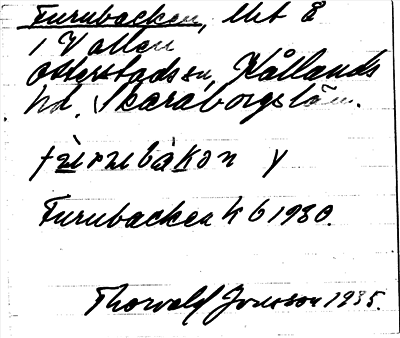 Furubacken, lht å
i Vallen
Otterstads sn, Kållands
hd. Skaraborgs län.
fùrubàkɔn y
Furubacken hb 1930.
Thorvald Jonsson 1935.